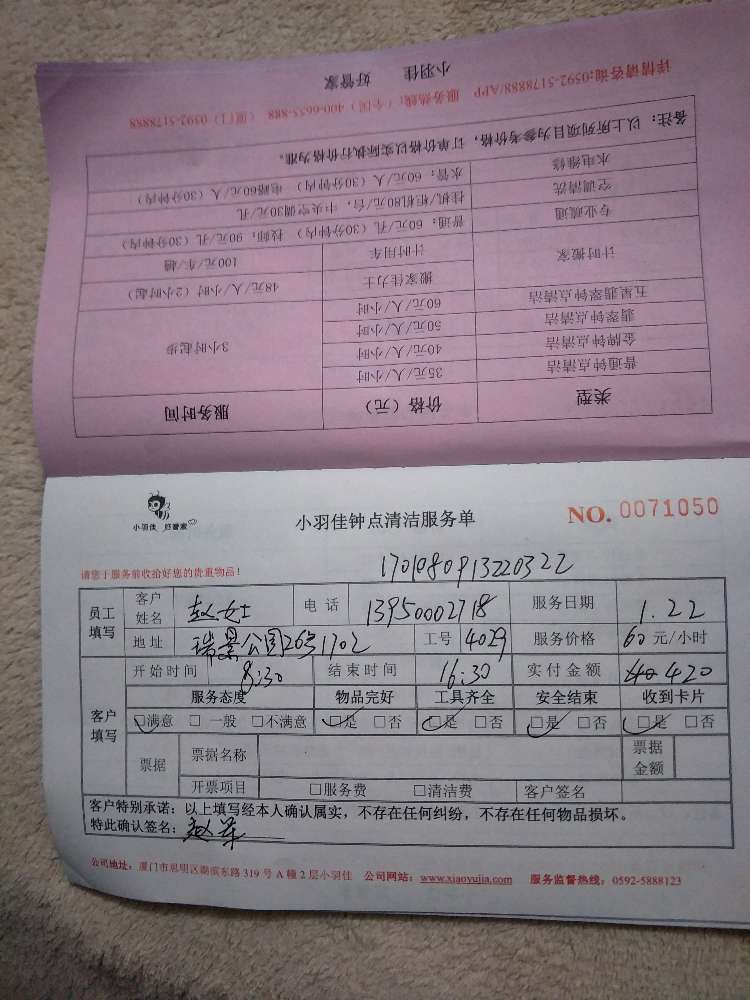 小羽佳 好管家
详情请咨询:0592-5178888/APP 服务热线:(全国)400-6655-888 (厦门)0592-5178888
类型 价格(元) 服务时间
普通钟点清洁 35元/人/小时 3小时起步
金牌钟点清洁 40元/人/小时
翡翠钟点清洁 50元/人/小时
五星翡翠钟点清洁 60元/人/小时
计时搬家 搬家佳力士 48元/人/小时(2小时起)
计时用车 100元/车/趟
专业疏通 普通:60元/孔(30分钟内) 技师:90元/孔(30分钟内)
空调清洗 挂机柜机80元/台,中央空调30元/孔
水电维修 水管:60元/人(30分钟内) 电路60元/人(30分钟内)
备注:以上所列项目为参考价格,订单价格以实际执行价格为准。
小羽佳 好管家
小羽佳钟点清洁服务单
NO. 0071050
请您于服务前收拾好您的贵重物品!
1701080913220322
员工填写 客户姓名 赵女士 电话 13950002718 服务日期 1.22
地址 瑞景公园26号1702 工号 4029 服务价格 60元/小时
客户填写 开始时间 8:30 结束时间 16:30 实付金额 420
服务态度 物品完好 工具齐全 安全结束 收到卡片
☑满意 □一般 □不满意 ☑是 □否 ☑是 □否 ☑是 □否 ☑是 □否
票据 票据名称 票据金额
开票项目 □服务费 □清洁费 客户签名
客户特别承诺:以上填写经本人确认属实,不存在任何纠纷,不存在任何物品损坏。
特此确认签名:赵
公司地址:厦门市思明区湖滨东路319号A幢2层小羽佳 公司网站:www.xiaoyujia.com 服务监督热线:0592-5888123